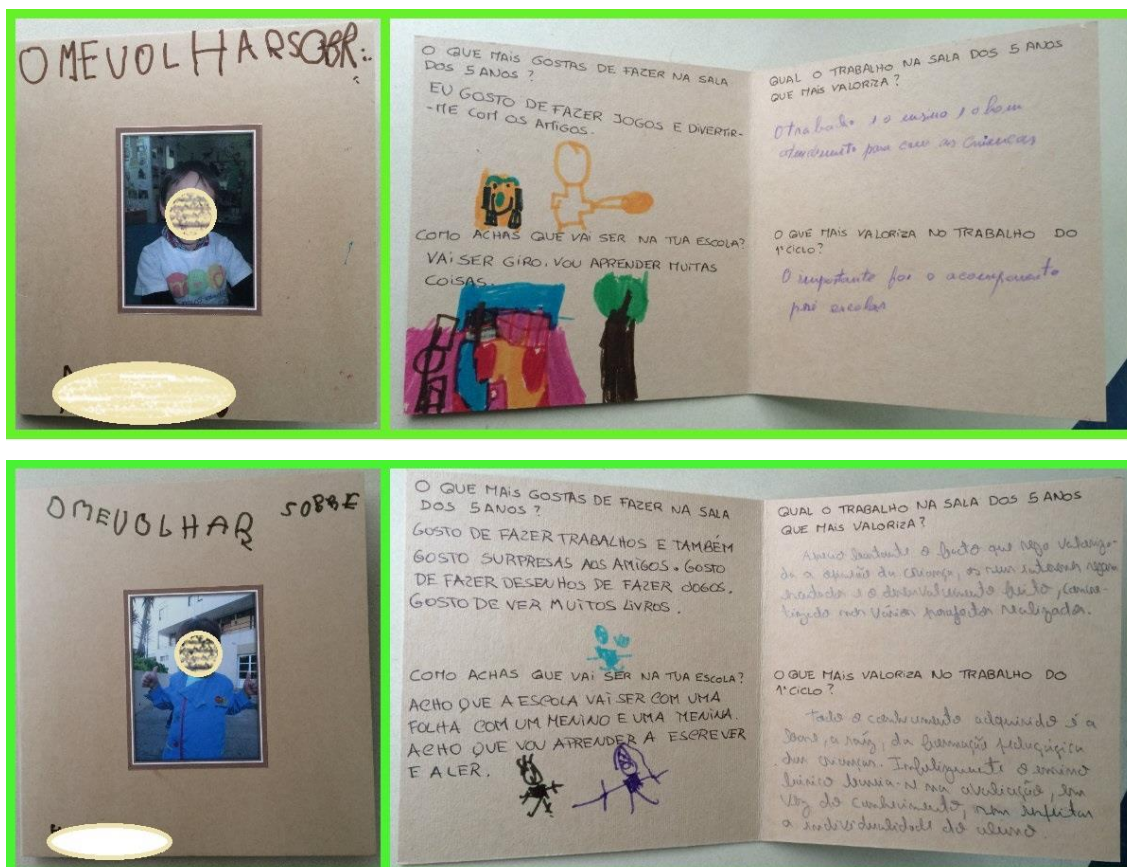 O MEU OLHAR SOBR
O QUE MAIS GOSTAS DE FAZER NA SALA
DOS 5 ANOS ?
EU GOSTO DE FAZER JOGOS E DIVERTIR-
-ME COM OS AMIGOS.
COMO ACHAS QUE VAI SER NA TUA ESCOLA?
VAI SER GIRO. VOU APRENDER MUITAS
COISAS.
QUAL O TRABALHO NA SALA DOS 5 ANOS
QUE MAIS VALORIZA ?
O trabalho e o ensino e o bom
atendimento para com as Crianças
O QUE MAIS VALORIZA NO TRABALHO DO
1º CICLO ?
O importante foi o
pré escolar
O MEU OLHAR SOBRE
O QUE MAIS GOSTAS DE FAZER NA SALA
DOS 5 ANOS ?
GOSTO DE FAZER TRABALHOS E TAMBÉM
GOSTO SURPRESAS AOS AMIGOS. GOSTO
DE FAZER DESENHOS DE FAZER JOGOS.
GOSTO DE VER MUITOS LIVROS.
COMO ACHAS QUE VAI SER NA TUA ESCOLA?
ACHO QUE A ESCOLA VAI SER COM UMA
FOLHA COM UM MENINO E UMA MENINA.
ACHO QUE VOU APRENDER A ESCREVER
E A LER.
QUAL O TRABALHO NA SALA DOS 5 ANOS
QUE MAIS VALORIZA ?
bastante o facto que seja valoriza-
da a opinião da criança, os seus interesses
e o desenvolvimento feito,
nos vários projectos realizados.
O QUE MAIS VALORIZA NO TRABALHO DO
1º CICLO ?
Todo o conhecimento adquirido é a
base, a raiz, da formação pedagógica
das crianças. Infelizmente o ensino
básico baseia-se na avaliação, em
vez do conhecimento, sem respeitar
a individualidade do aluno.